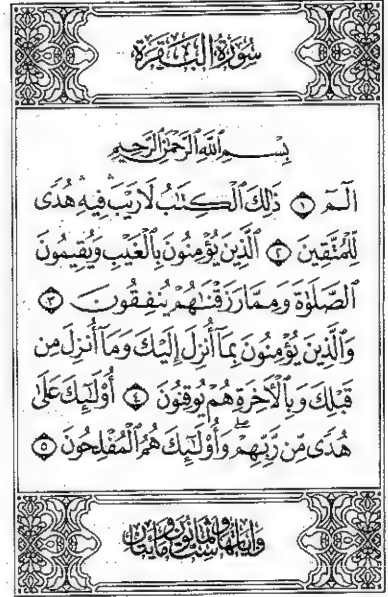 سُورَةُ البَقَرَةِ
بِسْمِ اللَّهِ الرَّحْمَٰنِ الرَّحِيمِ
الٓمٓ ۝١ ذَٰلِكَ الْكِتَٰبُ لَا رَيْبَ ۛ فِيهِ ۛ هُدًى
لِّلْمُتَّقِينَ ۝٢ الَّذِينَ يُؤْمِنُونَ بِالْغَيْبِ وَيُقِيمُونَ
الصَّلَوٰةَ وَمِمَّا رَزَقْنَٰهُمْ يُنفِقُونَ ۝٣
وَالَّذِينَ يُؤْمِنُونَ بِمَآ أُنزِلَ إِلَيْكَ وَمَآ أُنزِلَ مِن
قَبْلِكَ وَبِالْأَخِرَةِ هُمْ يُوقِنُونَ ۝٤ أُوْلَٰٓئِكَ عَلَىٰ
هُدًى مِّن رَّبِّهِمْ ۖ وَأُوْلَٰٓئِكَ هُمُ الْمُفْلِحُونَ ۝٥
وآياتها ست وثمانون ومايتان